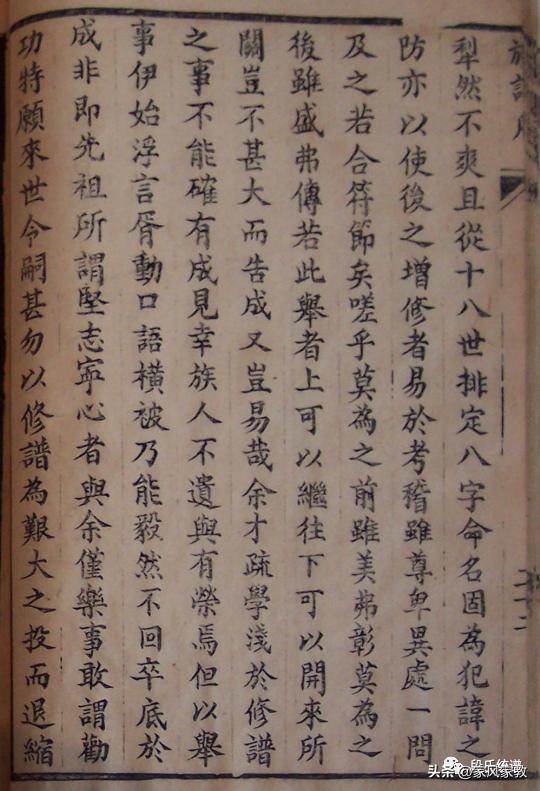 犁然不爽且從十八世排定八字命名固為犯諱之
防亦以使後之增修者易於考稽雖尊卑異處一問
及之若合符節矣嗟乎莫為之前雖美弗彰莫為之
後雖盛弗傳若此舉者上可以繼往下可以開來所
關豈不甚大而告成又豈易哉余才疏學淺於修譜
之事不能確有成見幸族人不遺與有榮焉但以舉
事伊始浮言胥動口語橫被乃能毅然不回卒底於
成非即先祖所謂堅志寧心者與余僅樂事敢謂勸
功特願來世令嗣甚勿以修譜為艱大之投而退縮
段氏统谱
头条@家风家教